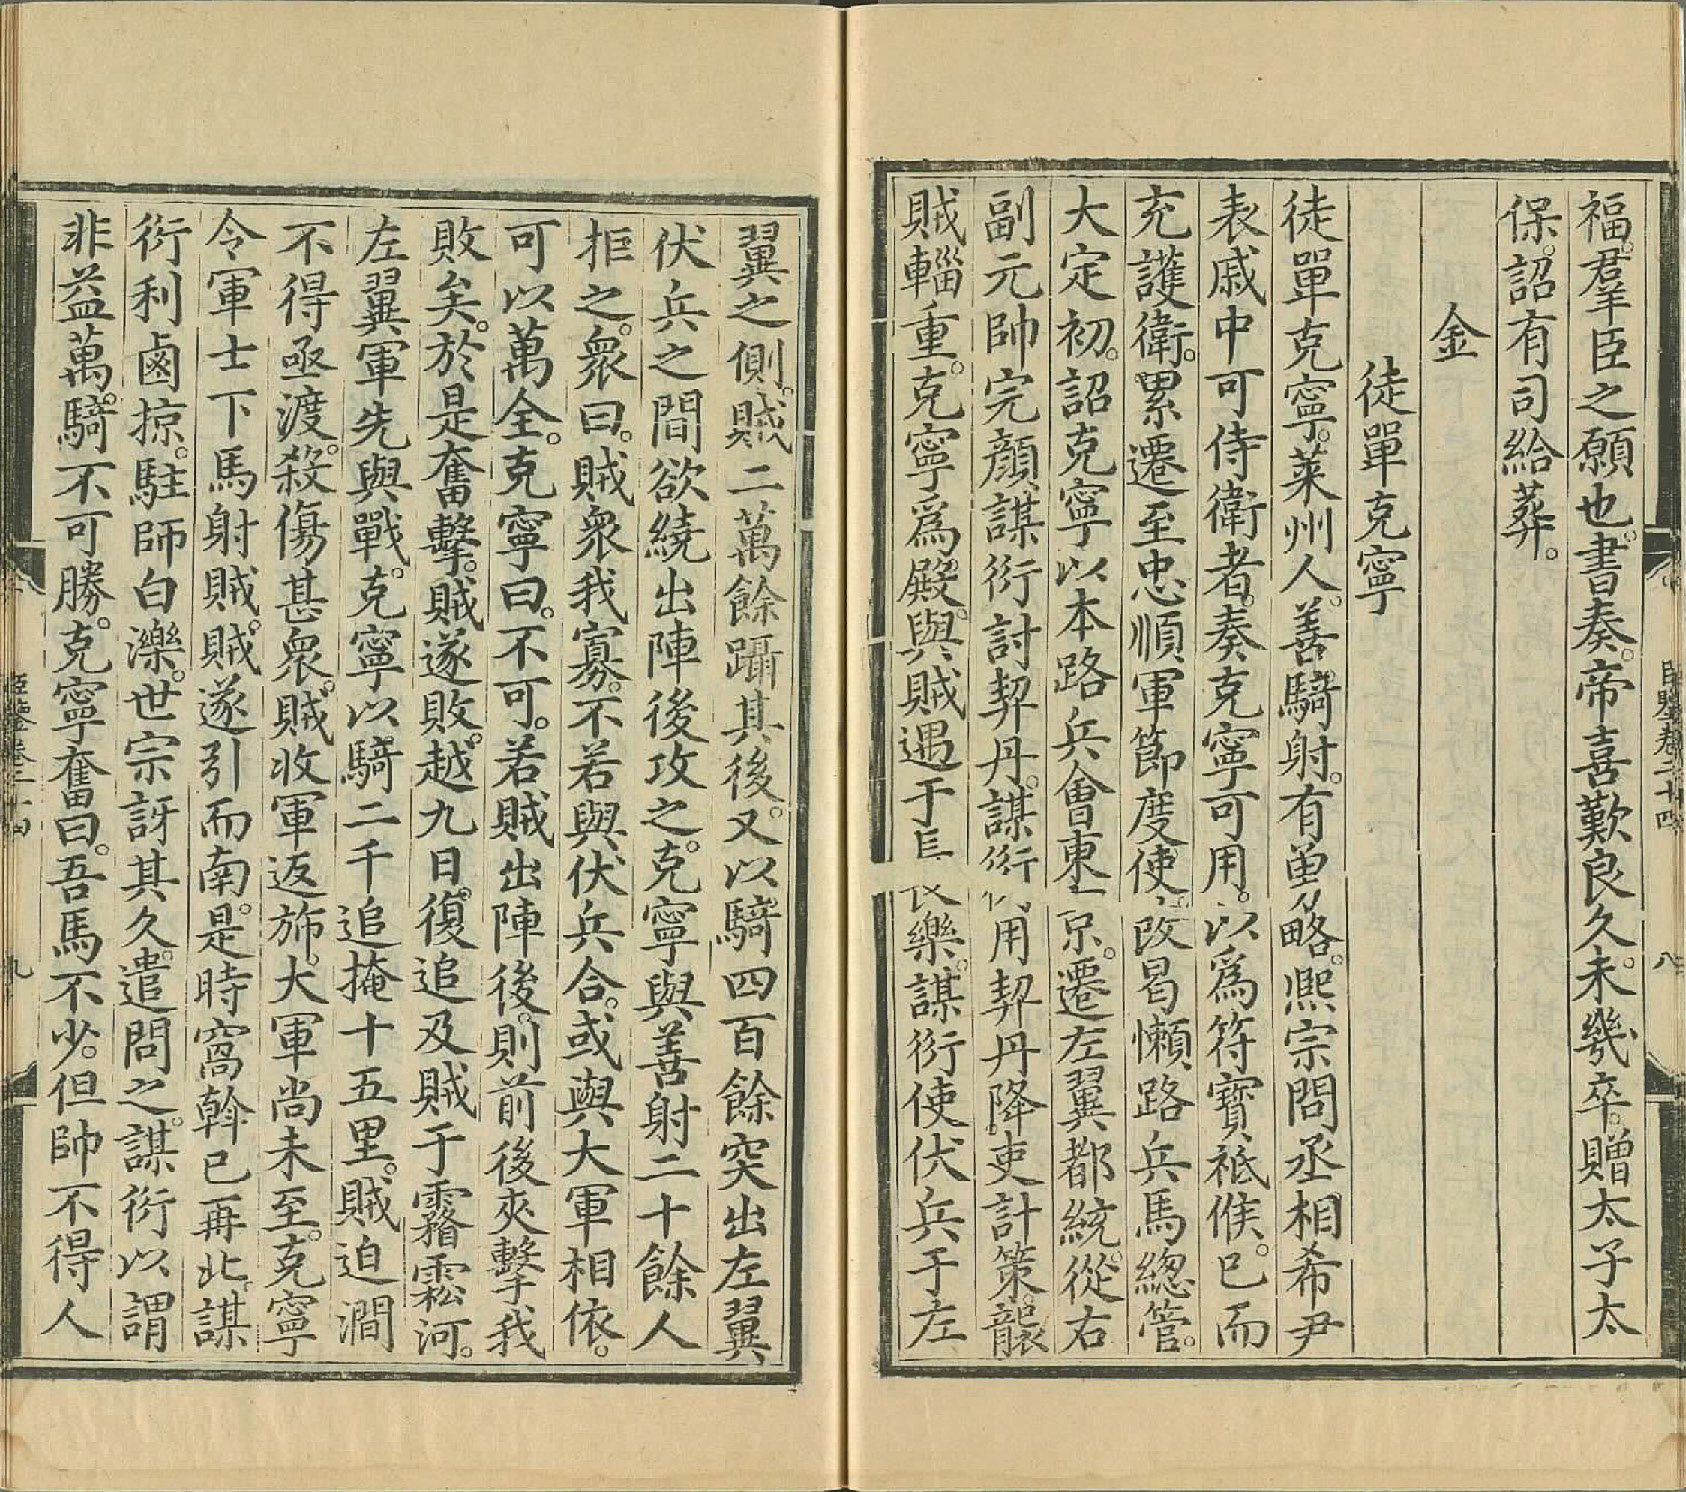 福。羣臣之願也。書奏。帝喜歎良久。未幾卒。贈太子太
保。詔有司給葬。
金
徒單克寧
徒單克寧。萊州人。善騎射。有勇略。熙宗問丞相希尹
表戚中可侍衛者。奏克寧可用。以爲符寶祗候。已而
充護衛。累遷至忠順軍節度使。改曷懶路兵馬總管。
大定初。詔克寧以本路兵會東京。遷左翼都統。從右
副元帥完顏謀衍討契丹。謀衍用契丹降吏計策。襲
賊輜重。克寧爲殿。與賊遇于長樂。謀衍使伏兵于左
臣鑒卷二十四
八
翼之側。賊二萬餘躡其後。又以騎四百餘突出左翼
伏兵之間欲繞出陣後攻之。克寧與善射二十餘人
拒之。衆曰。賊衆我寡。不若與伏兵合。或與大軍相依。
可以萬全。克寧曰。不可。若賊出陣後。則前後夾擊我
敗矣。於是奮擊。賊遂敗。越九日。復追及賊于霿𩃭河。
左翼軍先與戰。克寧以騎二千追掩十五里。賊迫澗
不得亟渡。殺傷甚衆。賊收軍返旆。大軍尚未至。克寧
令軍士下馬射賊。賊遂引而南。是時窩斡已再北。謀
衍利鹵掠。駐師白濼。世宗訝其久。遣問之。謀衍以謂
非益萬騎。不可勝。克寧奮曰。吾馬不少。但帥不得人
臣鑒卷二十四
九